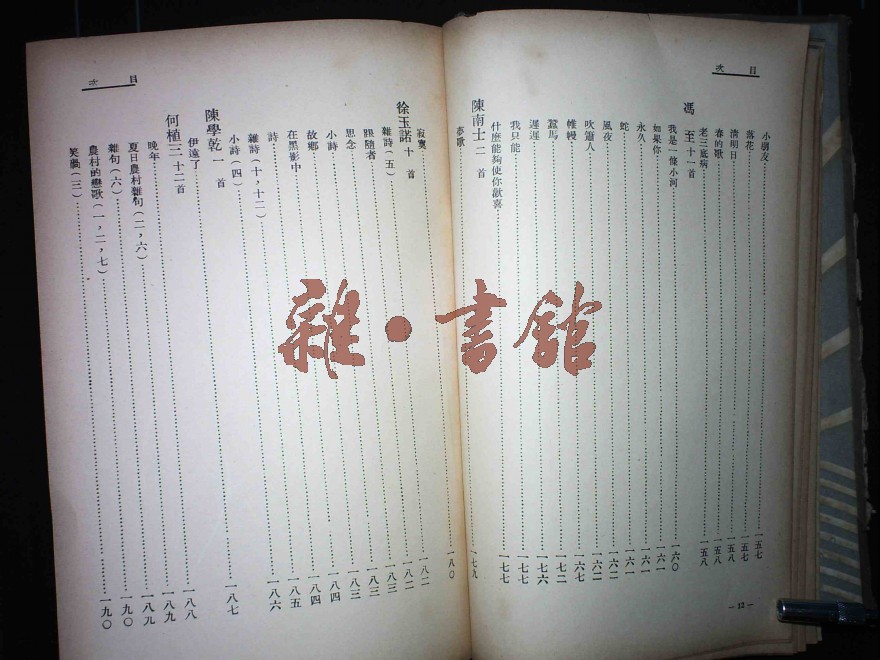 目次
小朋友……一五七
落花……一五七
清明日……一五八
春的歌……一五八
老三底病……一五八
馮至十一首
我是一條小河……一六〇
如果你……一六一
永久……一六一
蛇……一六一
風夜……一六二
吹簫人……一六二
帷幔……一六七
蠶馬……一七二
遲遲……一七六
我只能……一七七
什麼能夠使你歡喜……一七七
陳南士二首
夢歌……一七九
— 13 —
目次
寂寞……一八〇
徐玉諾十首
雜詩(五)……一八二
跟隨者……一八二
思念……一八三
小詩……一八三
故鄉……一八四
在黑影中……一八四
詩……一八五
雜詩(十,十二)……一八六
小詩(四)
陳學乾一首
伊遠了……一八七
何植三十二首
晚年……一八八
夏日農村雜句(二,六)……一八九
雜句(六)……一八九
農村的戀歌(一,二,七)……一九〇
笑渦(三)……一九〇
雜·書館